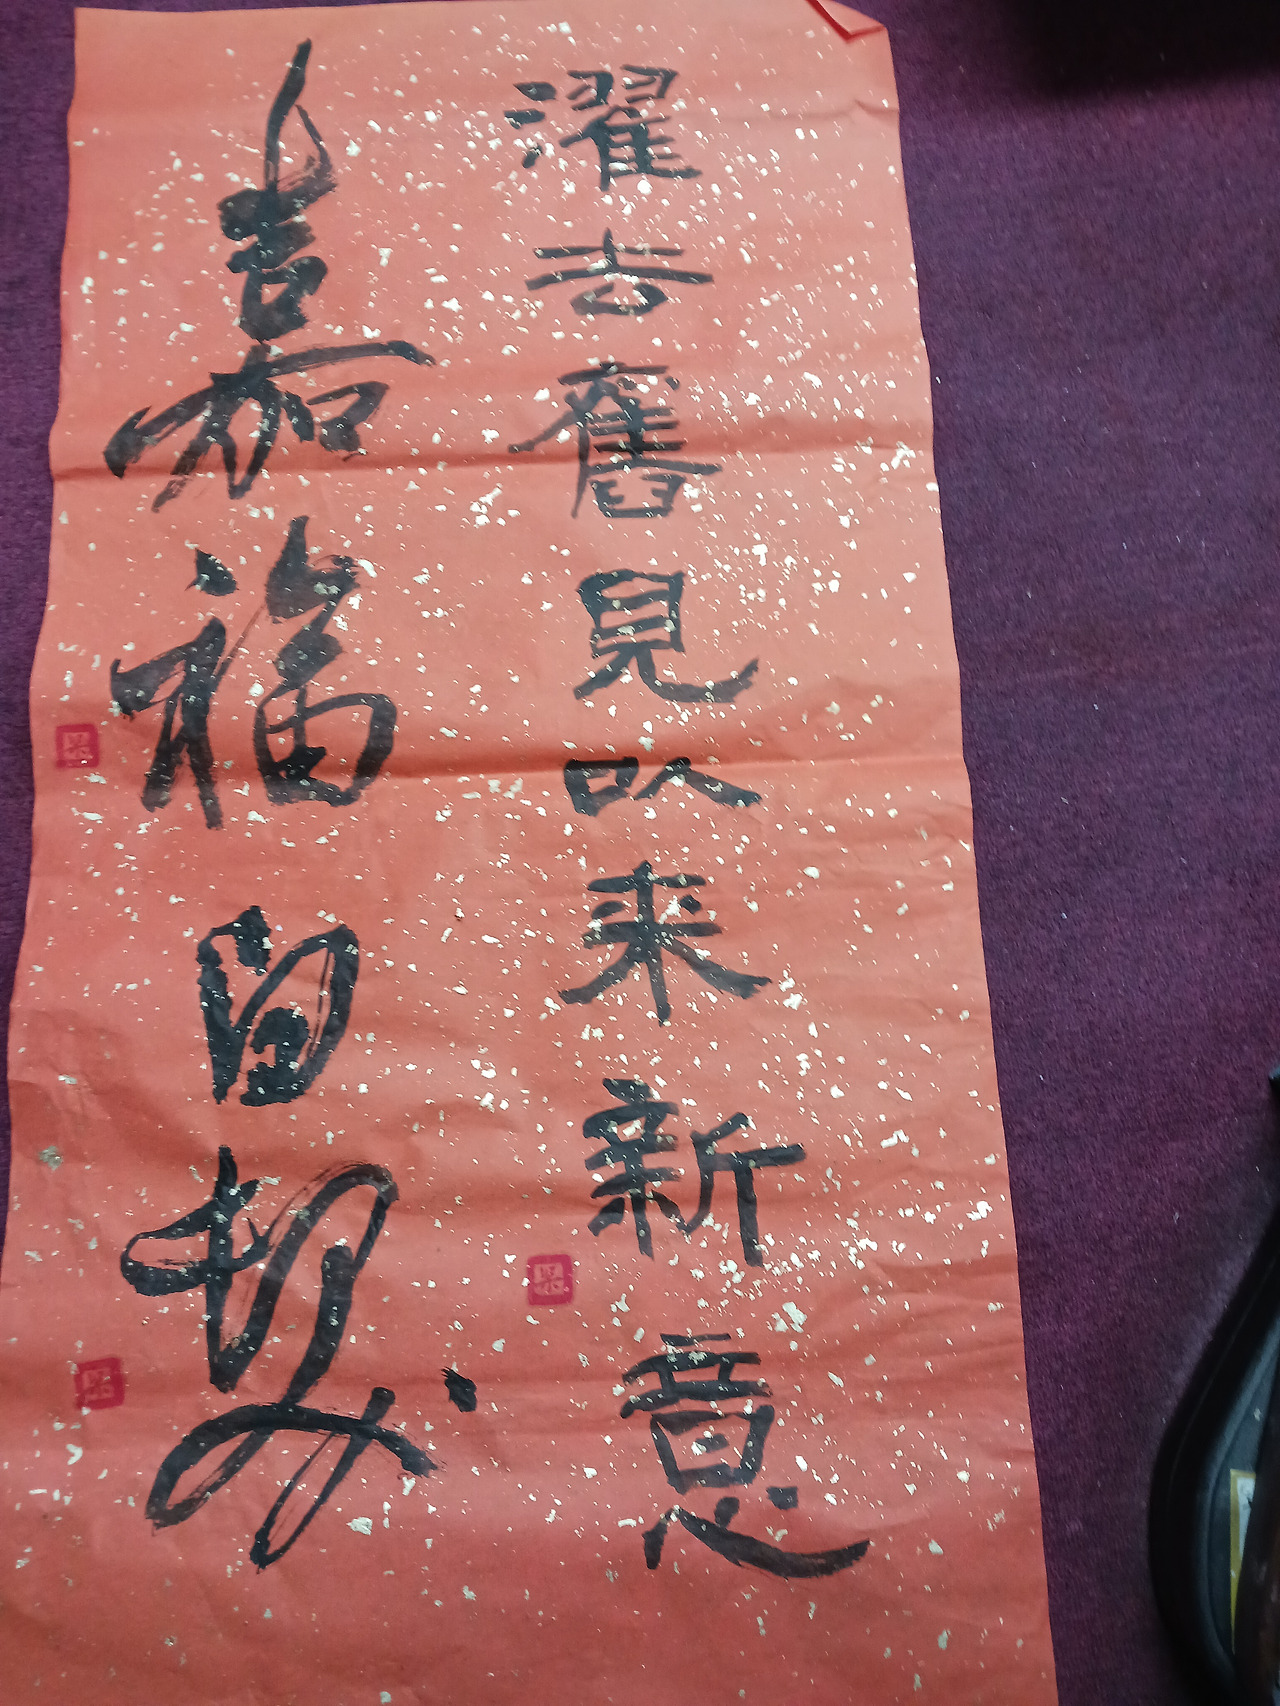 濯去舊見以來新意
嘉福自契